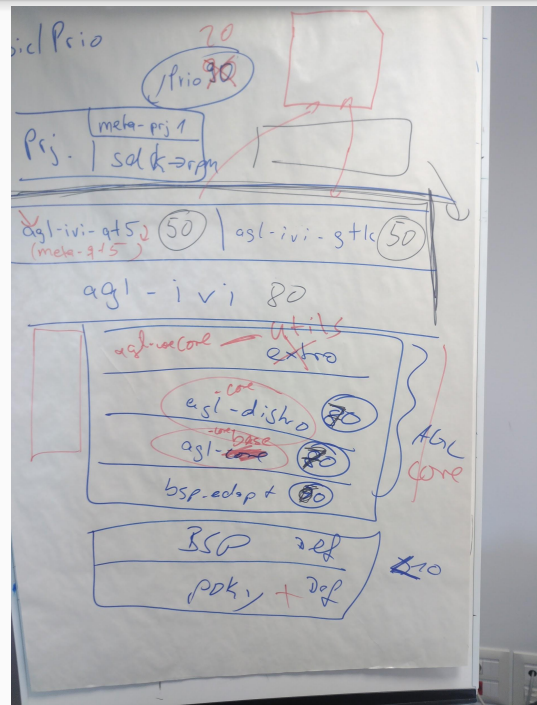 Prio
20
Prio 90
meta-prj1
Prj.
sdk→rpm
agl-ivi-qt5 50
agl-ivi-gtk 50
(meta-qt5)
agl-ivi 80
utils
extro
-core
agl-distro
-core base
agl-core
bsp-adapt
AGL
core
BSP Def
poky + Def
10